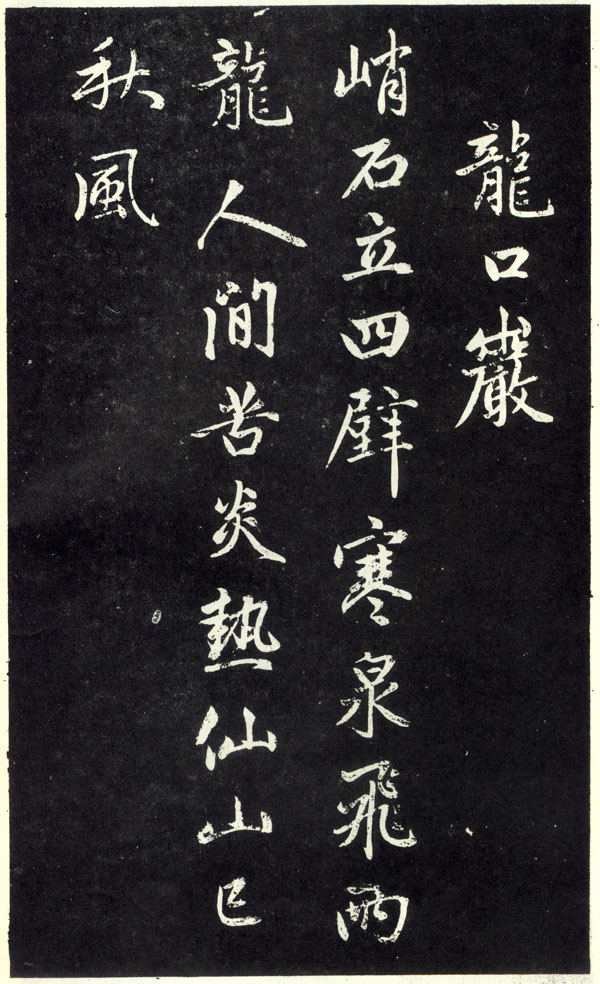 龍口巖
峭石立四壁寒泉飛兩
龍人間苦炎熱仙山已
秋風